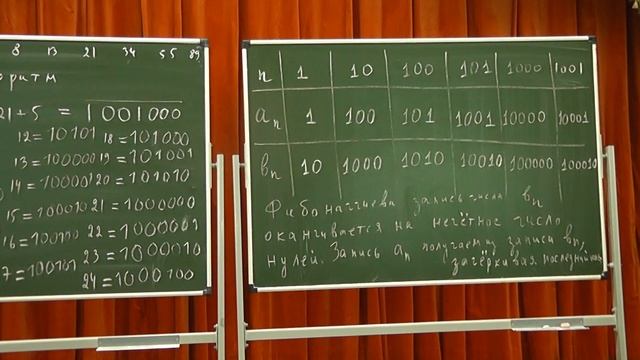 8 13 21 34 55 89
оритм
21+5 = 1001000
12=10101 18=101000
13=100000 19=101001
14=100001 20=101010
15=100010 21=1000000
16=100100 22=1000001
7=100101 23=1000010
24=1000100
n 1 10 100 101 1000 1001
aₙ 1 100 101 1001 10000 10001
bₙ 10 1000 1010 10010 100000 100010
Фибоначчиева запись числа bₙ
оканчивается на нечётное число
нулей. Запись aₙ получаем из записи bₙ,
зачёркивая последний ноль